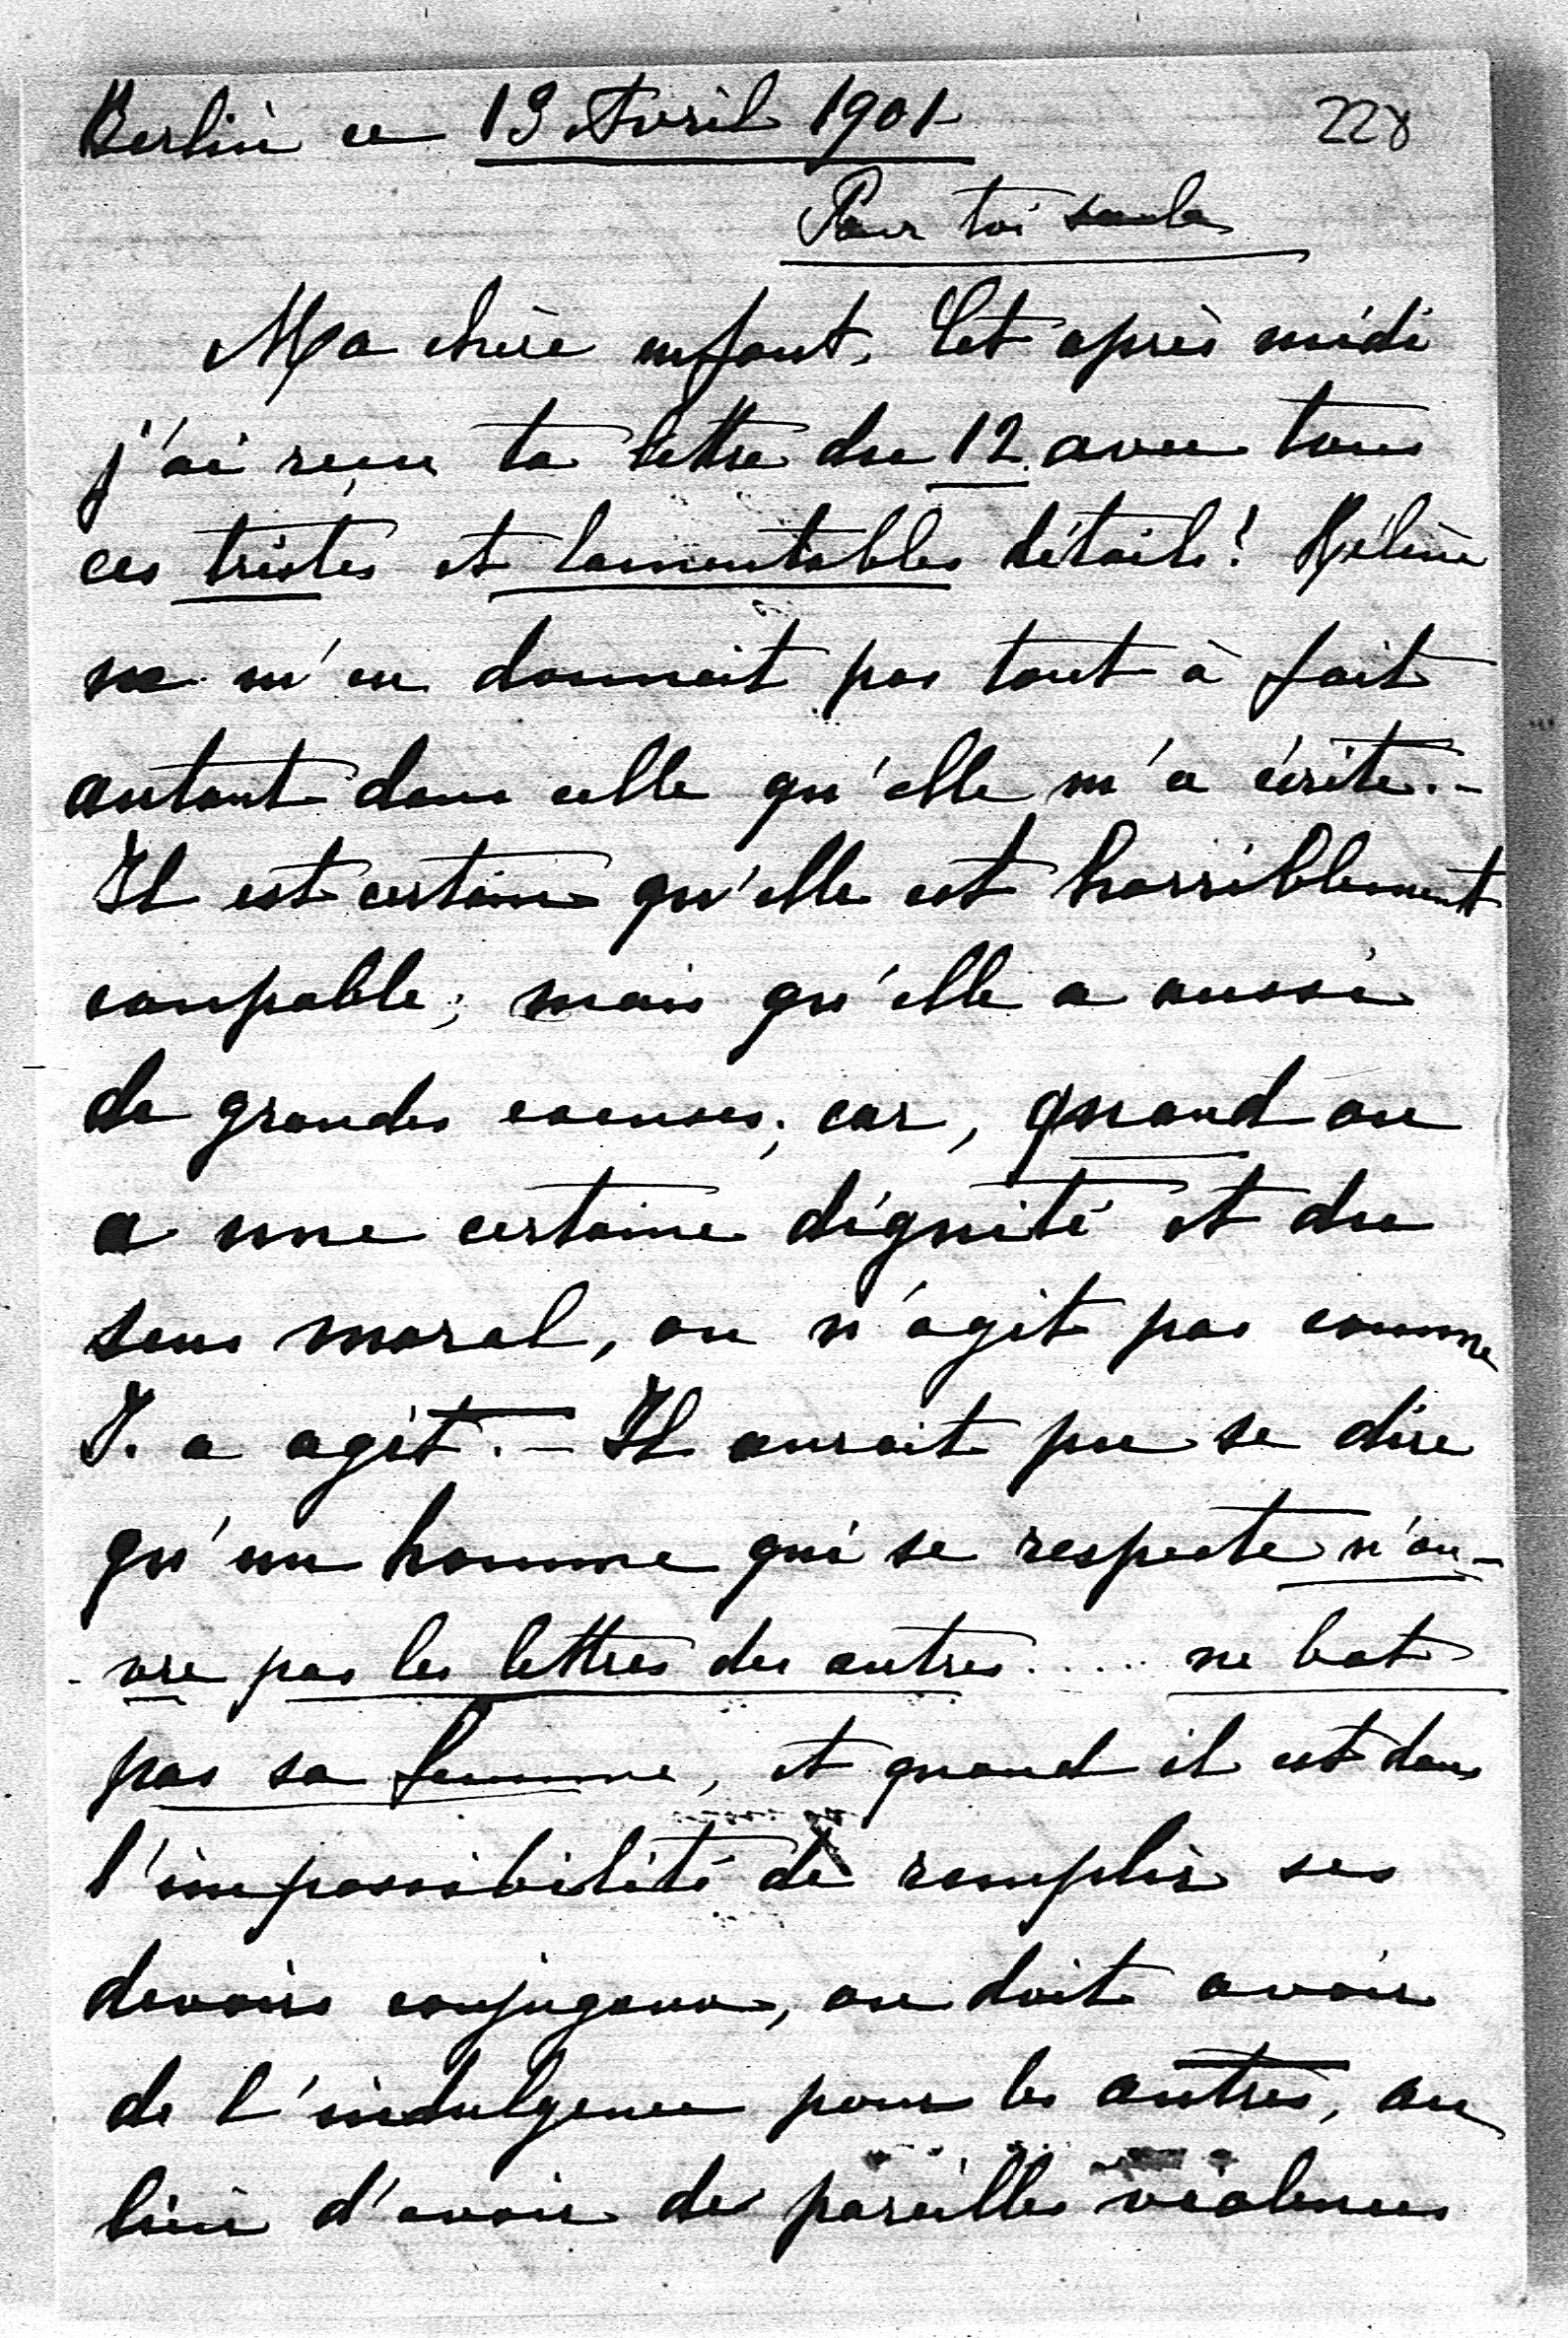 Berlin ce 13 Avril 1901 228
Pour toi seule
Ma chère enfant, Cet après midi
j'ai reçu ta lettre du 12 avec tous
ces tristes et lamentables détails! Hélène
ne m'en donnait pas tout à fait
autant dans celle qu'elle m'a écrite.-
Il est certain qu'elle est horriblement
coupable; mais qu'elle a aussi
de grandes excuses; car, quand on
a une certaine dignité et du
sens moral, on n'agit pas comme
J. a agit.- Il aurait pu se dire
qu'un homme qui se respecte n'ou-
-vre pas les lettres des autres..... ne bat
pas sa femme, et quand il est dans
l'impossibilité de remplir ses
devoirs conjugaux, on doit avoir
de l'indulgence pour les autres, au
lieu d'avoir de pareilles violences